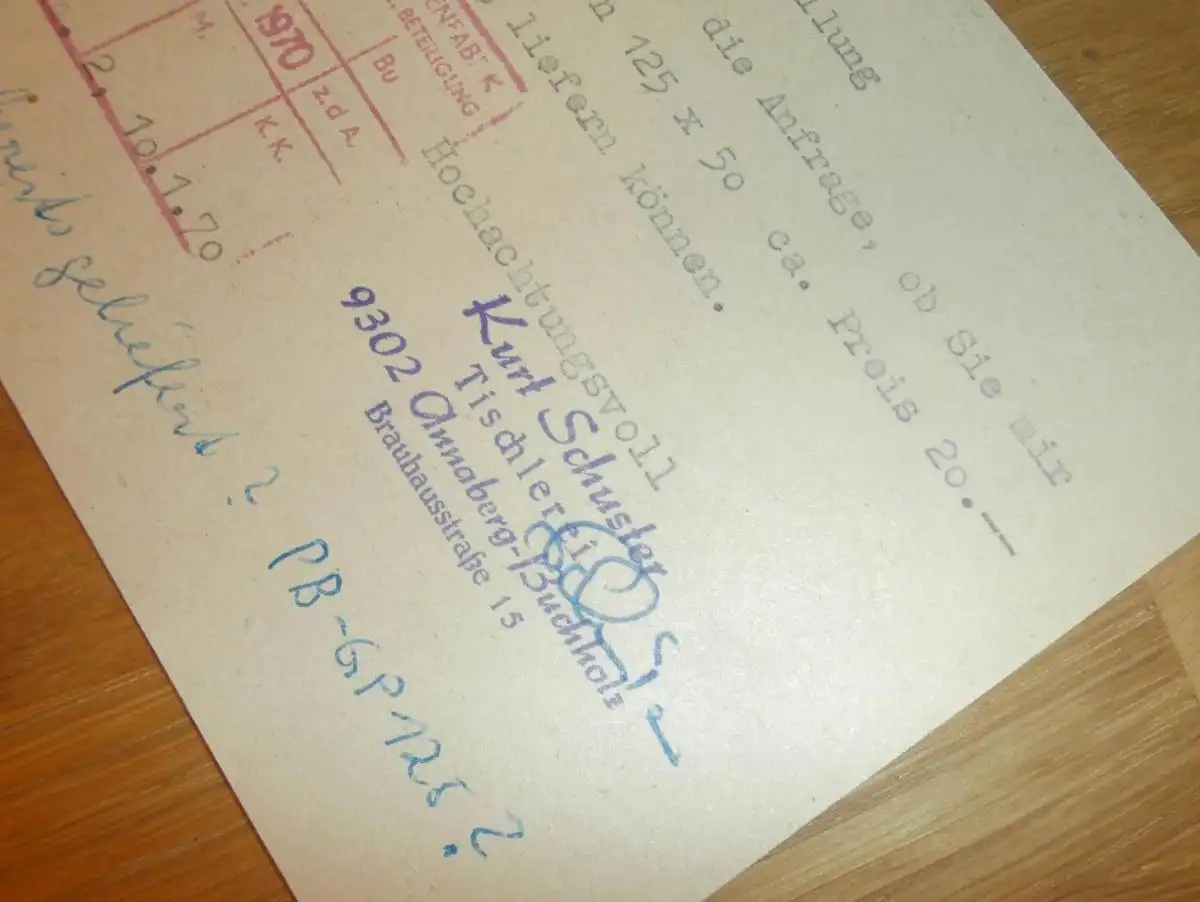 die Anfrage, ob Sie mir
125 x 50 ca. Preis 20.--
liefern können.
Hochachtungsvoll
Kurt Schuster
Tischlerei
9302 Annaberg-Buchholz
Brauhausstraße 15
BETEILIGUNG
1970
Bu
z.d A.
M.
K.K.
2. 10.1.70
geliefert?
PB-GP 125?